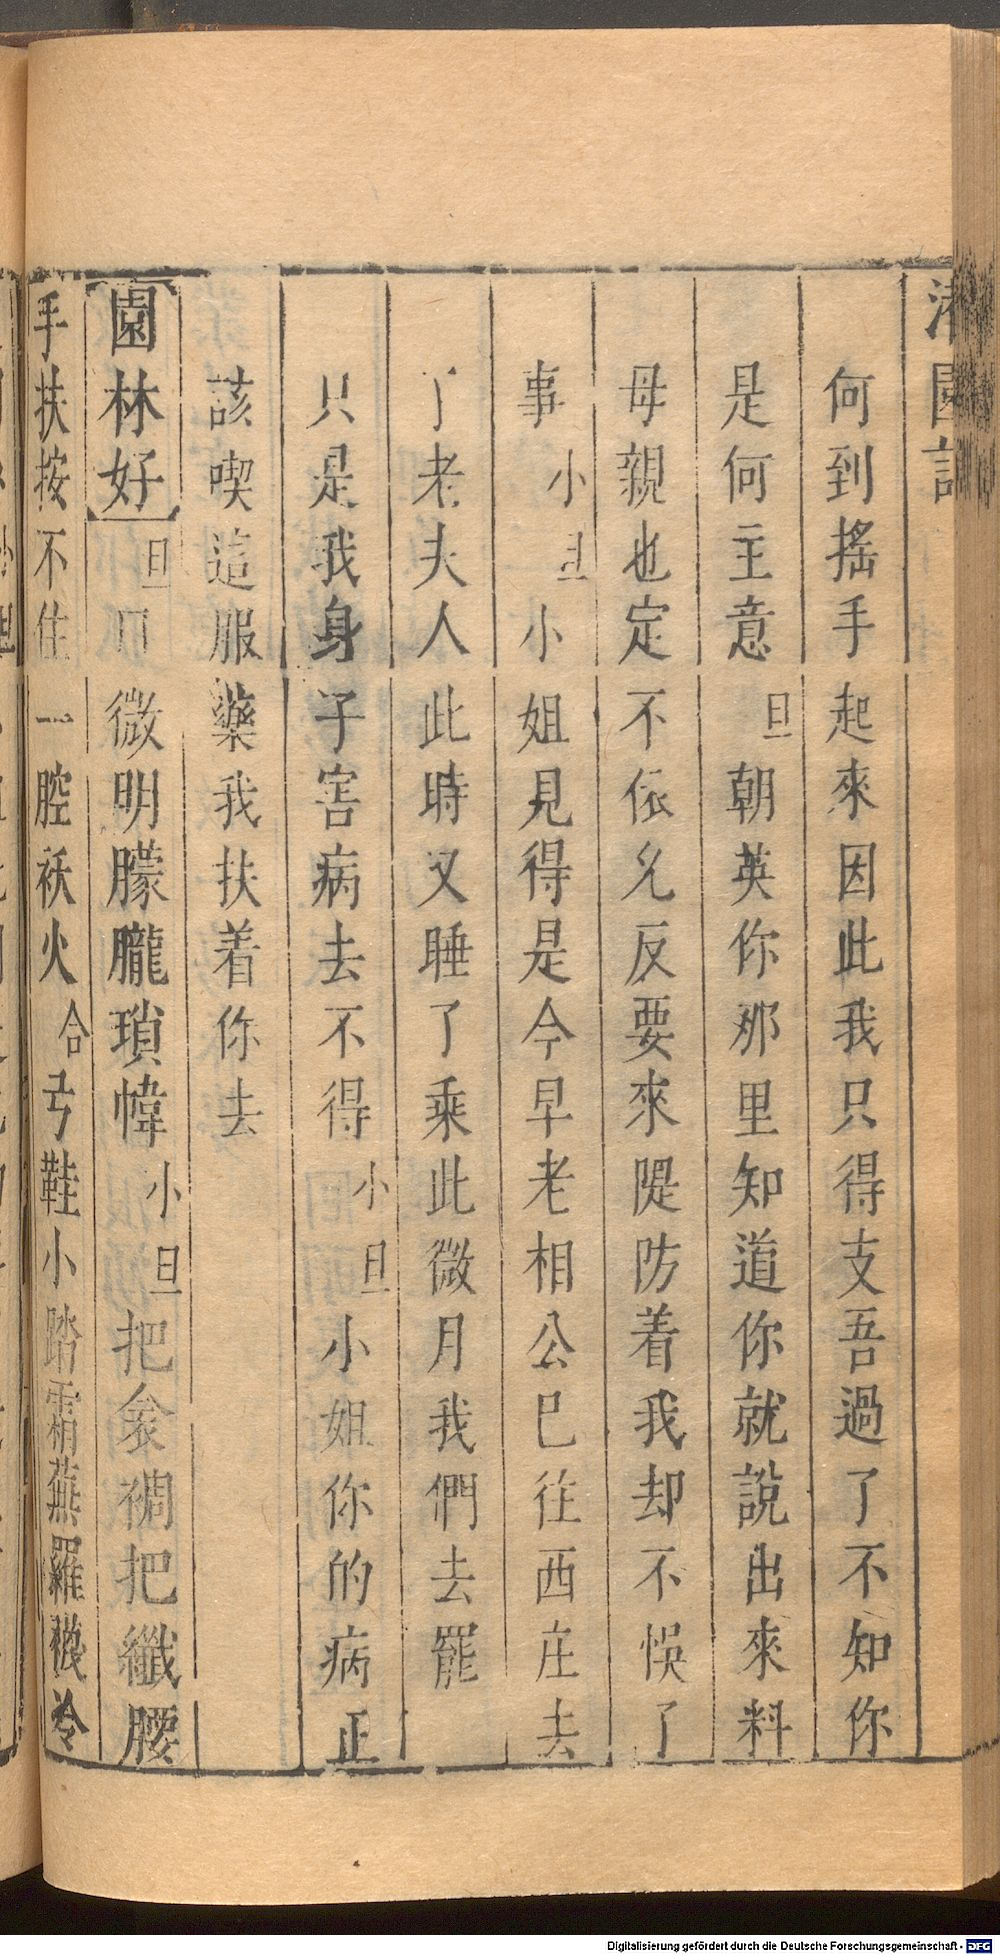 園記
何到搖手起來因此我只得支吾過了不知你
是何主意旦朝英你那里知道你就說出來料
母親也定不依允反要來隄防着我却不悞了
事小旦小姐見得是今早老相公已往西庄去
了老夫人此時又睡了乘此微月我們去罷
只是我身子害病去不得小旦小姐你的病正
該喫這服藥我扶着你去
園林好旦微明朦朧瑣幃小旦把衾裯把纖腰
手扶按不住一腔袄火合弓鞋小踏霜蕪羅襪冷
Digitalisierung gefördert durch die Deutsche Forschungsgemeinschaft - DFG